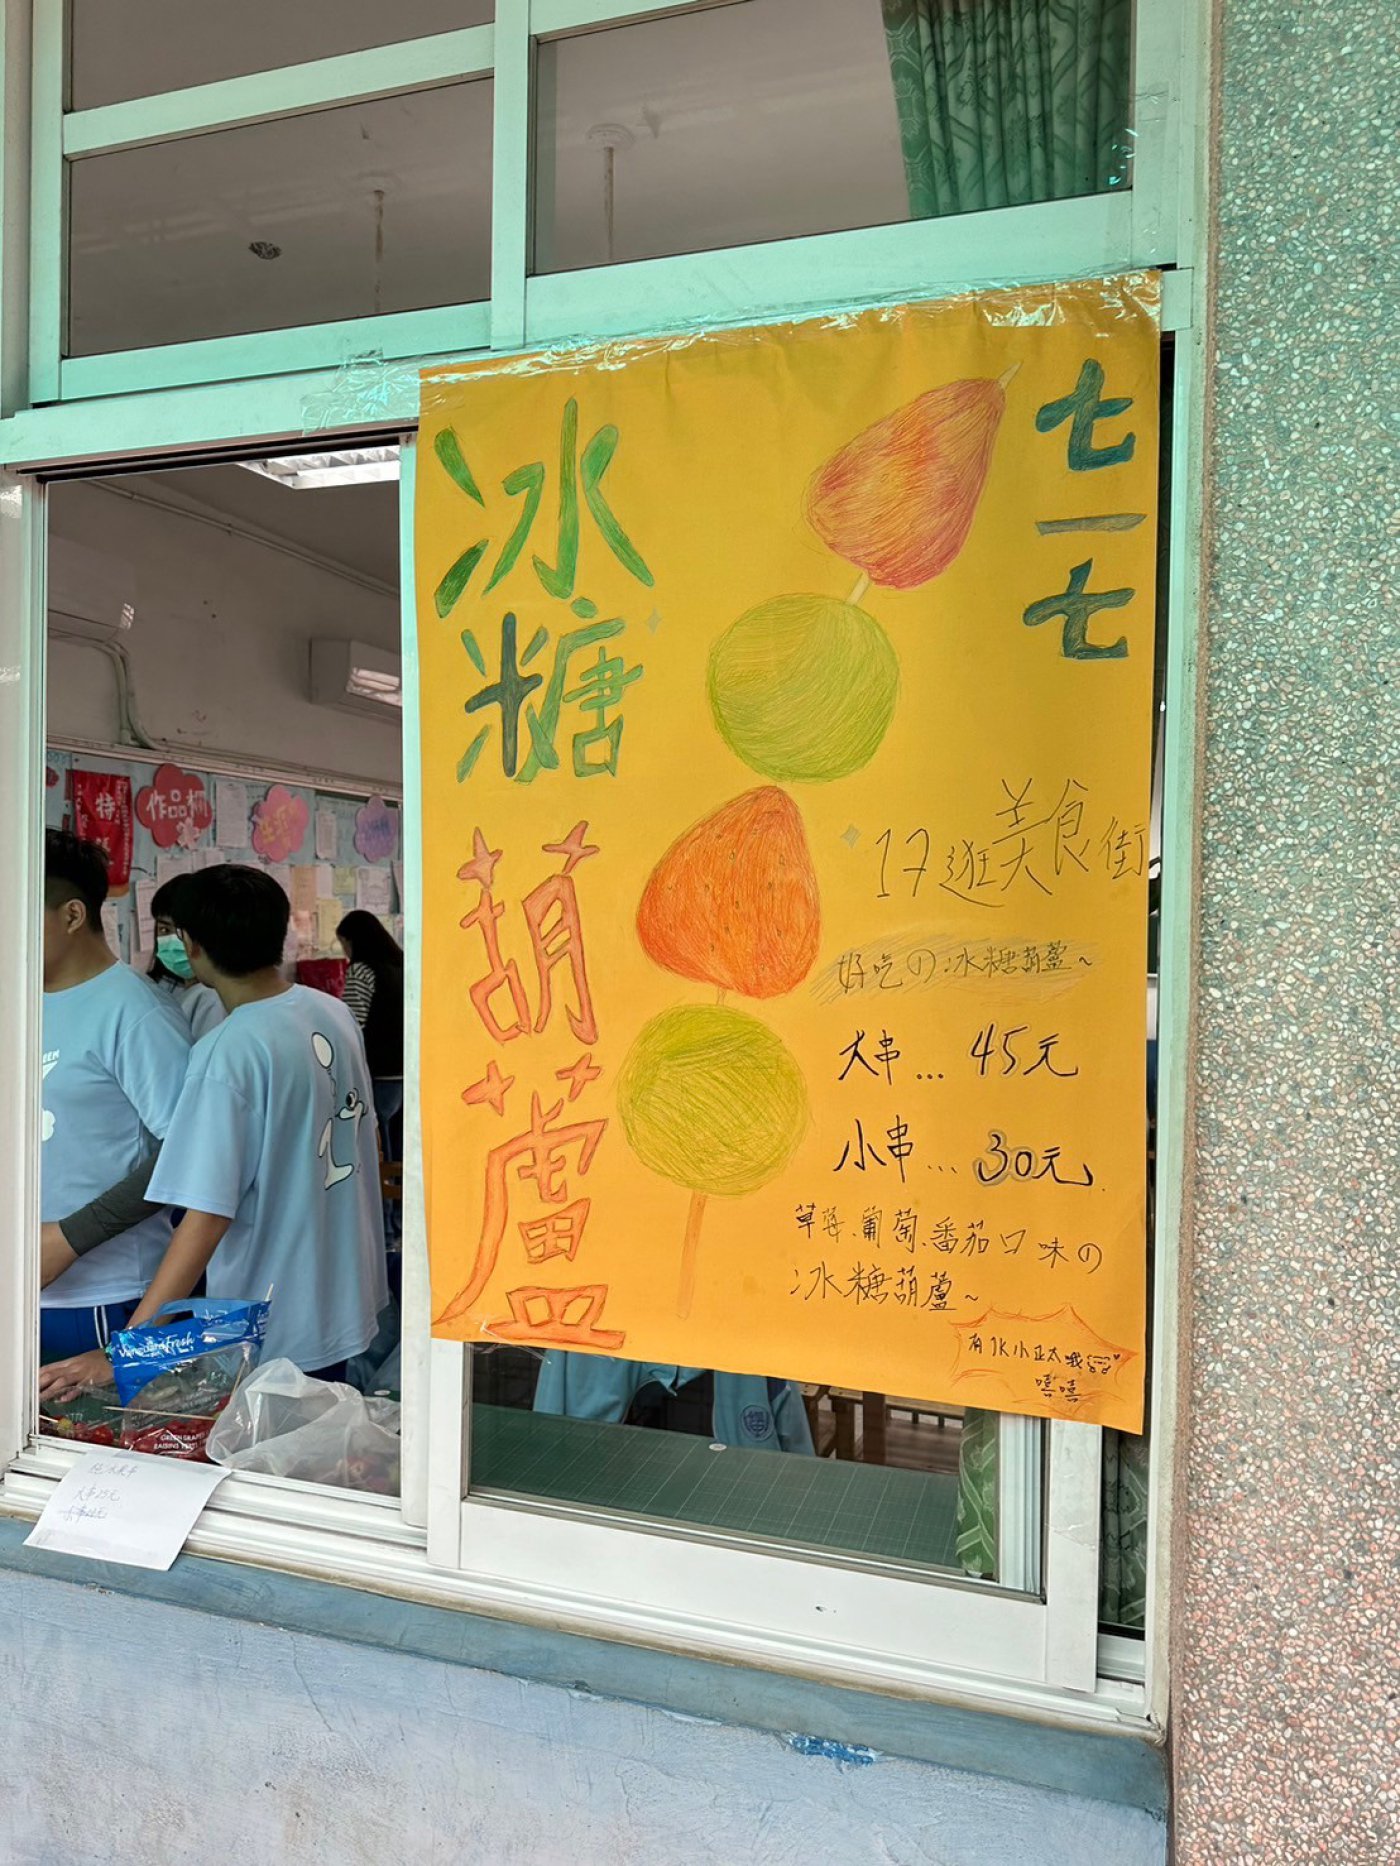 冰糖
葫蘆
七一七
17逛美食街
好吃の冰糖葫蘆~
大串... 45元
小串... 30元
草莓、葡萄、番茄口味の
冰糖葫蘆~
有1K小正太哦
嘻嘻
特
作品欄
VancouverFresh
GREEN GRAPES
RAISINS FRESH
大串25元